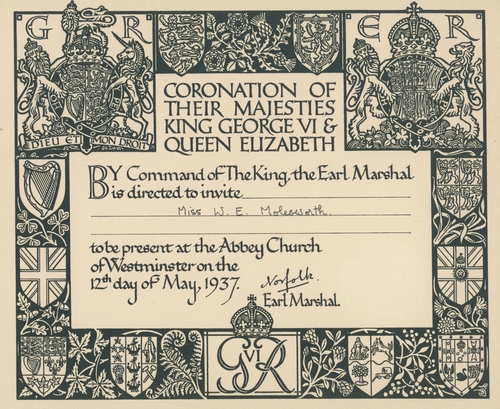 G R
E R
DIEU ET MON DROIT
CORONATION OF
THEIR MAJESTIES
KING GEORGE VI &
QUEEN ELIZABETH
BY Command of The King, the Earl Marshal
is directed to invite
Miss W. E. Molesworth.
to be present at the Abbey Church
of Westminster on the
12th day of May, 1937.
Norfolk.
Earl Marshal.
G VI R